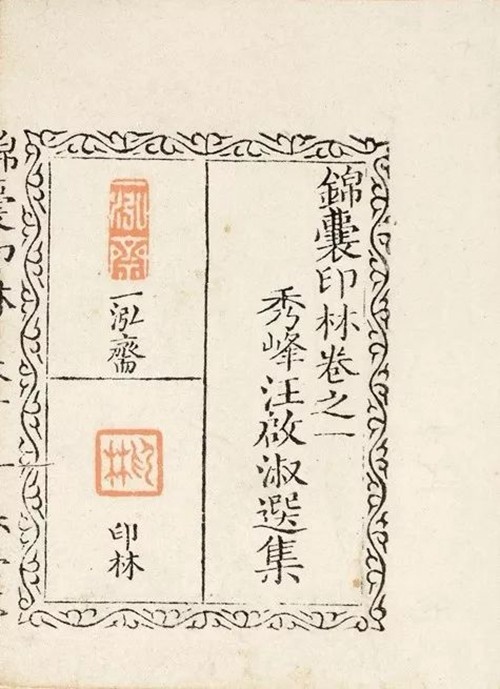 錦囊印林卷之一
秀峰汪啟淑選集
一泓齋
一泓齋
印林
印林
錦囊印林